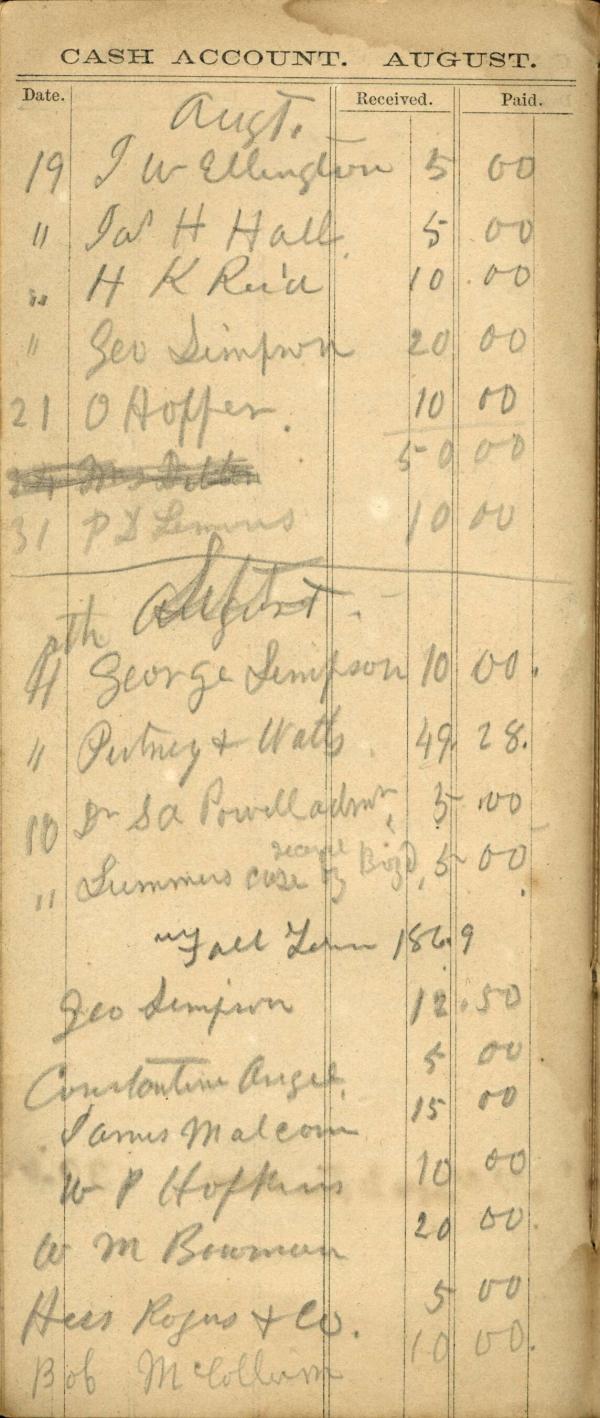 CASH ACCOUNT. AUGUST.
Date. Received. Paid.
Augt.
19 J W Ellington 5 00
" Jas H Hall 5 00
" H K Reid 10 00
" Geo Simpson 20 00
21 O Hopper. 10 00
50 00
31 P D 10 00
George Simpson 10 00.
" Putney & Watts 49 28.
10 Dr S A Powell admr 5 00
" Summers case by Boyd 5 00
Fall Term 1869
Geo Simpson 12.50
Constantine Angel 5 00
James Malcom 15 00
W P Hopkins 10 00
W M Bowman 20 00.
& Co. 5 00
Bob McCollum 10 00.